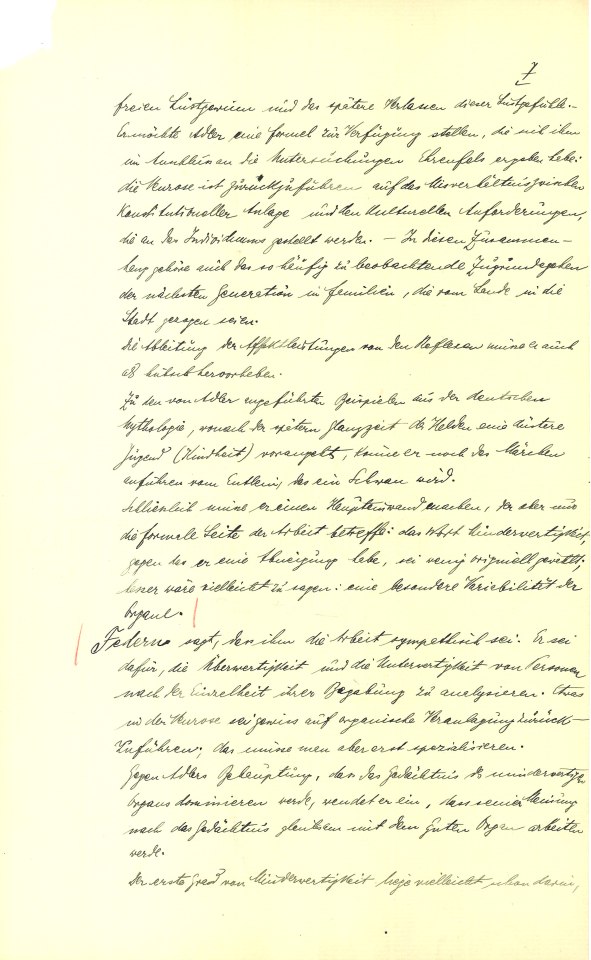 7
freien Lustgewinn und das spätere Verlassen dieser Lustgefühle. –
Er möchte Adler eine Formel zur Verfügung stellen, die sich ihm
im Anschluss an die Untersuchungen Ehrenfels ergeben habe:
die Neurose ist zurückzuführen auf das Misverhältnis zwischen
Konstitutioneller Anlage und den Kulturellen Anforderungen,
die an das Individuum gestellt werden. – In diesen Zusammen-
hang gehöre auch das so häufig zu beobachtende Zugrundegehen
der nächsten Generation in Familien, die vom Lande in die
Stadt gezogen seien.
Die Ableitung der Affektleistungen von den Reflexen müsse er auch
als hübsch hervorheben.
Zu den von Adler angeführten Beispielen aus der deutschen
Mythologie, wonach der spätern Glanzzeit der Helden eine düstere
Jugend (Kindheit) vorangeht, könne er noch das Märchen
anführen vom Entlein, das ein Schwan wird.
Schliesslich müsse er einen Haupteinwand machen, der aber nur
die formale Seite der Arbeit betreffe: das Wort Minderwertigkeit,
gegen das er eine Abneigung habe, sei wenig originell gewählt;
besser wäre vielleicht zu sagen: eine besondere Variabilität der
Organe.
Federn sagt, dass ihm die Arbeit sympathisch sei. Er sei
dafür, die Überwertigkeit und die Unterwertigkeit von Personen
nach der Einzelheit ihrer Begabung zu analysieren. Etwas
in der Neurose sei gewiss auf organische Veranlagung zurück-
zuführen; das müsse man aber erst spezialisieren.
Gegen Adlers Behauptung, dass das Gedächtnis des minderwertigen
Organs dominieren werde, wendet er ein, dass seiner Meinung
nach das Gedächtnis gleichsam mit dem guten Organ arbeiten
werde.
Der erste Grad von Minderwertigkeit liege vielleicht schon darin,